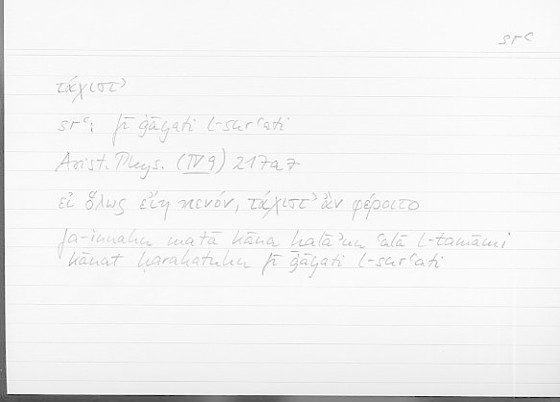 srʿ
τάχιστ’
srʿ: fī ġāyati l-surʿati
Arist. Phys. (IV 9) 217a7
εἰ ὅλως εἴη κενόν, τάχιστ’ ἂν φέροιτο
fa-innahu matā kāna ḫalāʾun ʿalā l-tamāmi
kānat ḥarakatuhu fī ġāyati l-surʿati